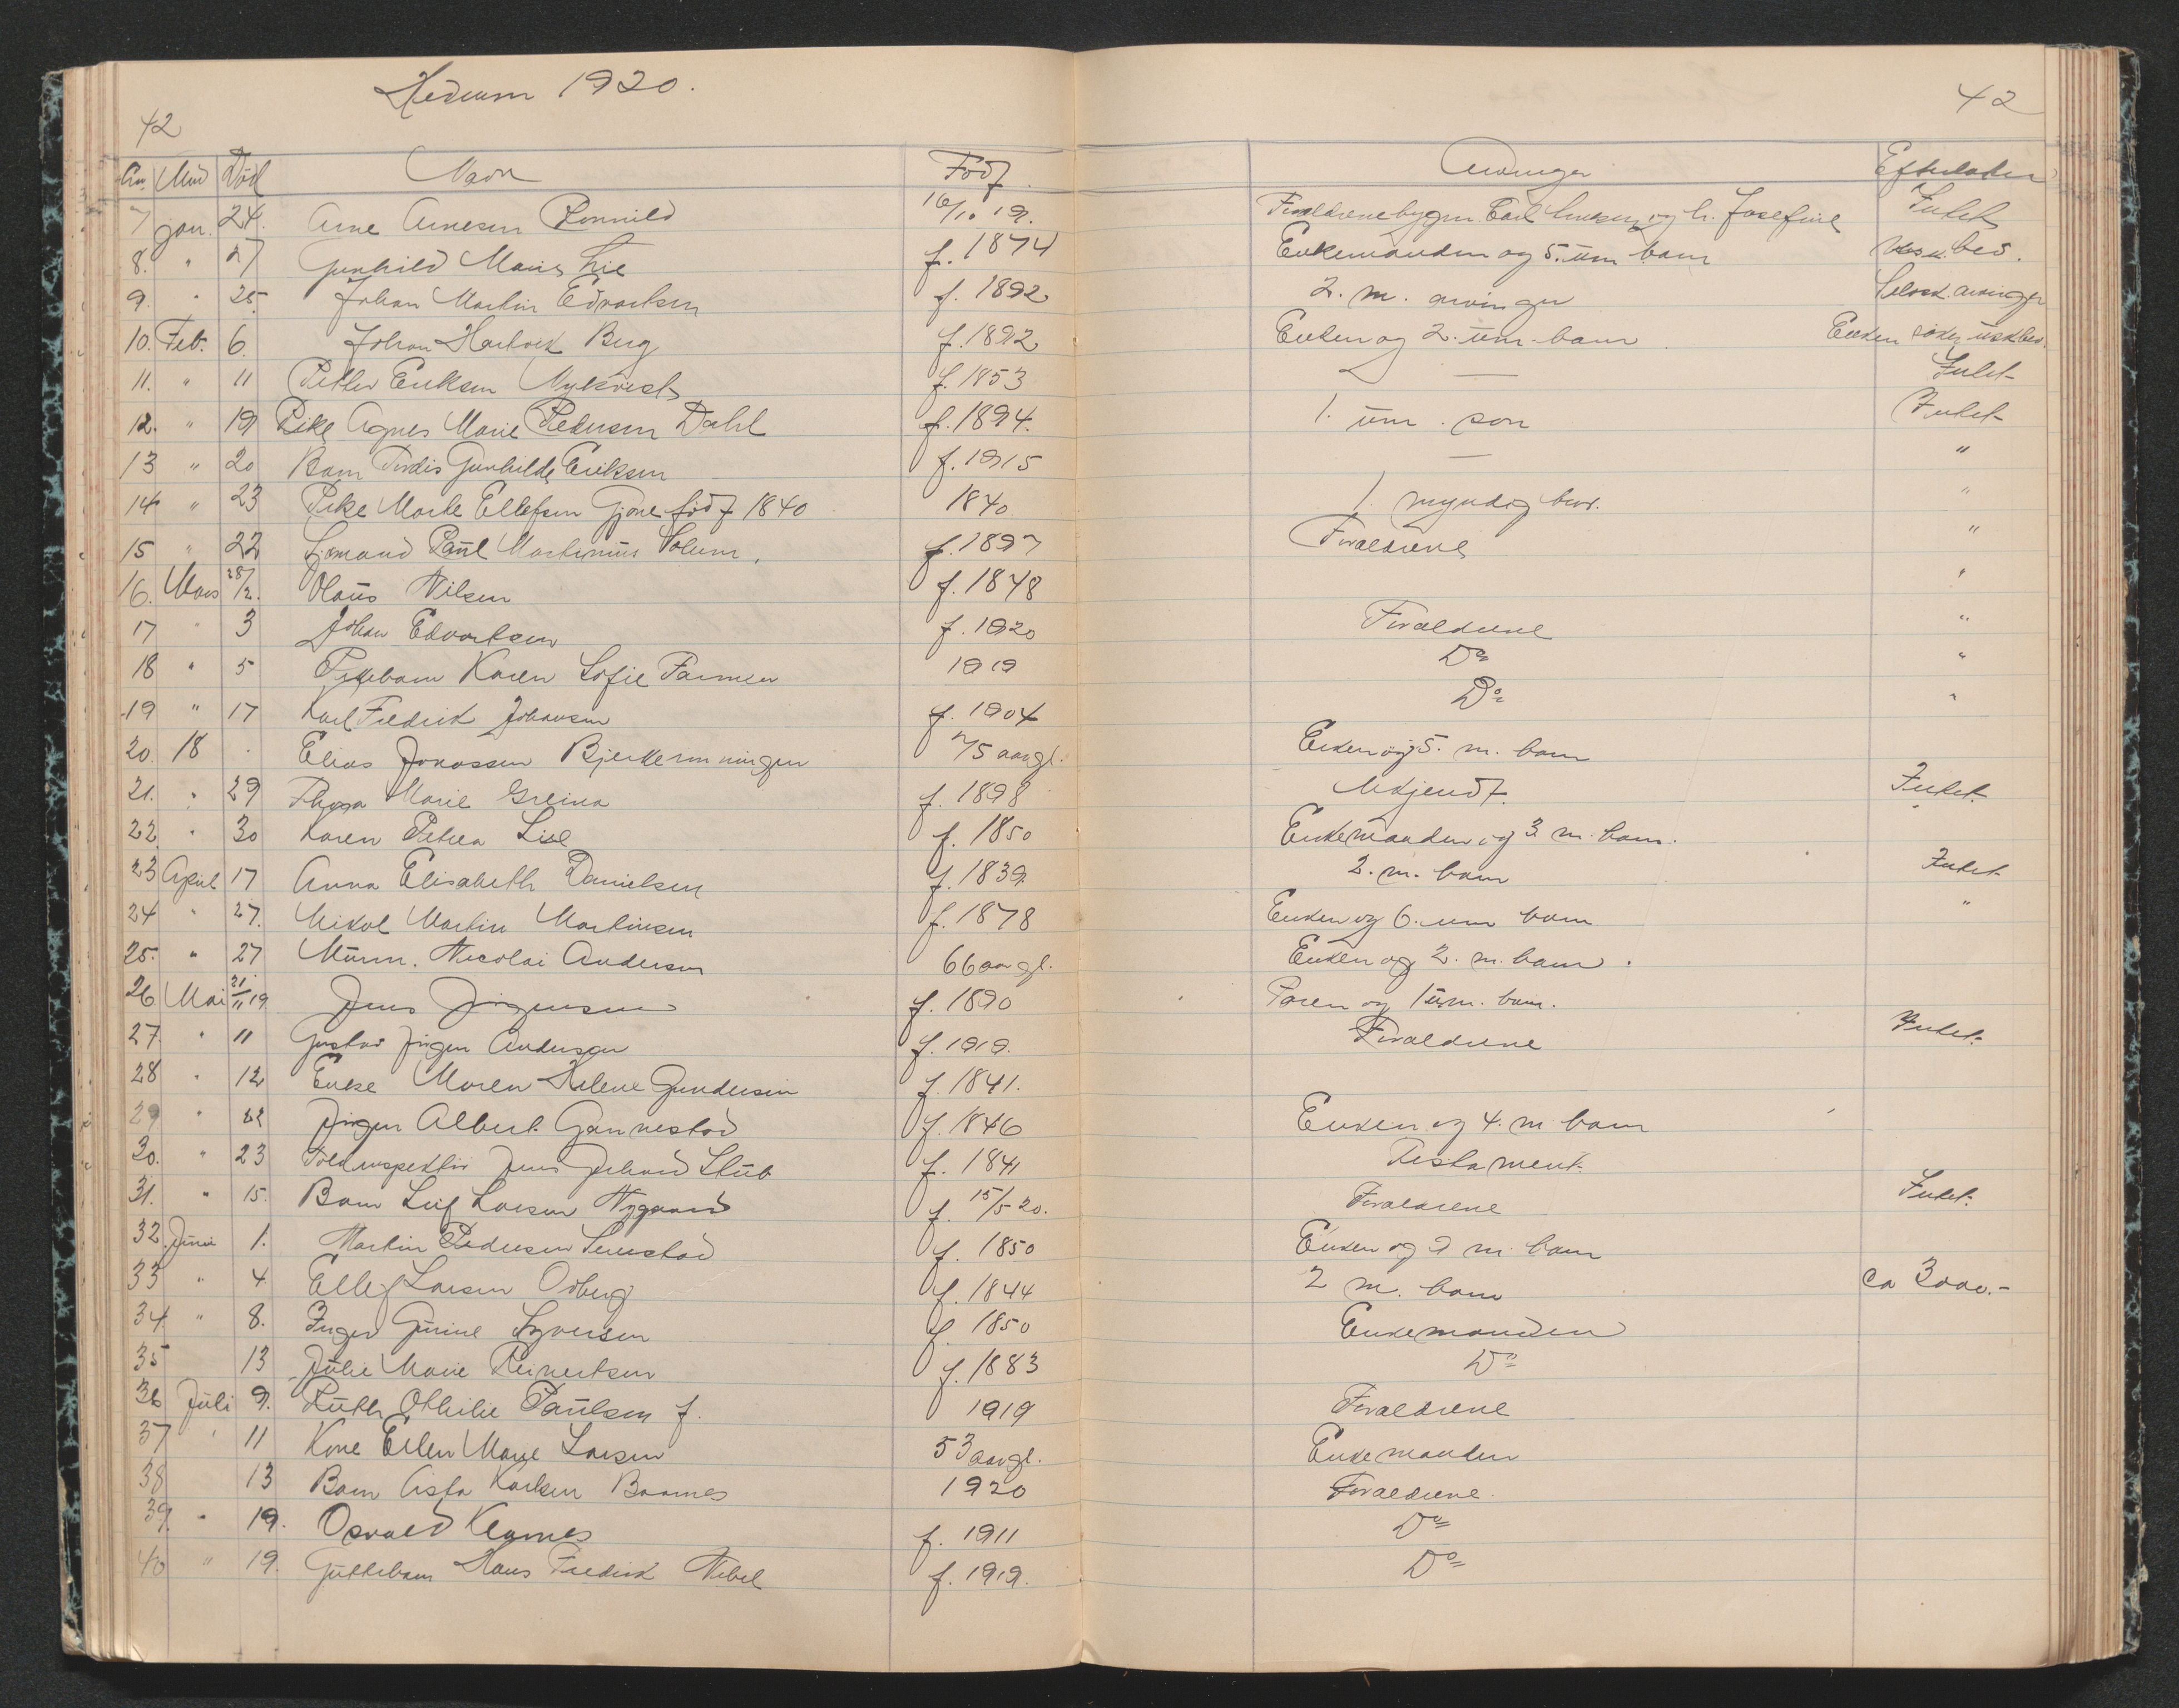 Hedrum 1920.
42
42
An. Mnd Död Navn Född. Arvinger Efterlader
7 Jan. 24. Arne Arnesen 16/10 19. Forældrene Carl og h. Josefine Intet
8. " 27 Gunhild Marie Lie f. 1874 Enkemanden og 5. üm barn bes.
9. " 25. Johan Martin Edvartsen f. 1892 2. m. arvinger arvinger
10. Feb. 6. Johan Berg f. 1892 Enken og 2. üm. barn Enken
11. " 11 Petter Eriksen Nykvist f. 1853 — Intet
12. " 19 Pike Agnes Marie Pedersen Dahl f. 1894. 1. üm. son Intet
13 " 20 Barn Tordis Gunhilde Eriksen f. 1915 — "
14 " 23 Pike Marte Ellefsen Gjone född 1840 1840 1. myndig "
15 " 22 Sjömand Paül Martinius Solum. f. 1897 Foræidrene "
16. Mars 28/2. Olaüs Nilsen f. 1848 "
17 " 3 Johan Edvartsen f. 1920 Forældrene "
18 " 5 Pikebarn Karen Sofie Farmen 1919 Do "
19 " 17 Karl Fredrik Johansen f. 1904 Do "
20. 18 . Elias Jonassen 75 aargl. Enken og 5. m. barn
21. " 29 Marie Greina f. 1898 Ukjendt. Intet.
22. " 30 Karen Petrea Lie f. 1850 Enkemanden og 3 m. barn.
23 April 17 Anna Elisabeth Danielsen f. 1839 2. m. barn Intet
24 " 27. Nikol Martin Martinsen f. 1878 Enken og 6. üm barn "
25. " 27 Mürm. Nicolai Andersen 66 aargl. Enken og 2. m. barn.
26 Mai 21/11 19 Jens Jörgensen f. 1890 Faren og 1 üm. barn.
27. " 11 Gustav Jörgen Andersen f. 1919. Forældrene Intet.
28 " 12 Enke Maren Helene Gundersen f. 1841.
29 " 22 Jörgen Albert Gannestad f. 1846 Enken og 4. m barn
30. " 23 Toldinspektör Jens Stüb f. 1841 Testament.
31. " 15. Barn Leif Larsen Nygaard f. 15/5 20. Forældrene Intet.
32. Juni 1. Martin Pedersen f. 1850 Enken og 2 m. barn
33 " 4 Ellef Larsen Odberg f. 1844 2 m. barn ca 3000.-
34 " 8. Inger Gürine Syversen f. 1850 Enkemanden
35 13 Julie Marie Reinertsen f. 1883 Do
36 Jüli 9. Rüth Othilie Paülsen f. 1919 Forældrene
37 " 11 Kone Ellen Marie Larsen 53 aargl. Enkemanden
38 13 Barn Asta Karlsen 1920 Forældrene
39. " 19. Osvald f. 1911 Do
40 " 19. Güttebarn Hans Fredrik Nibel f. 1919. Do